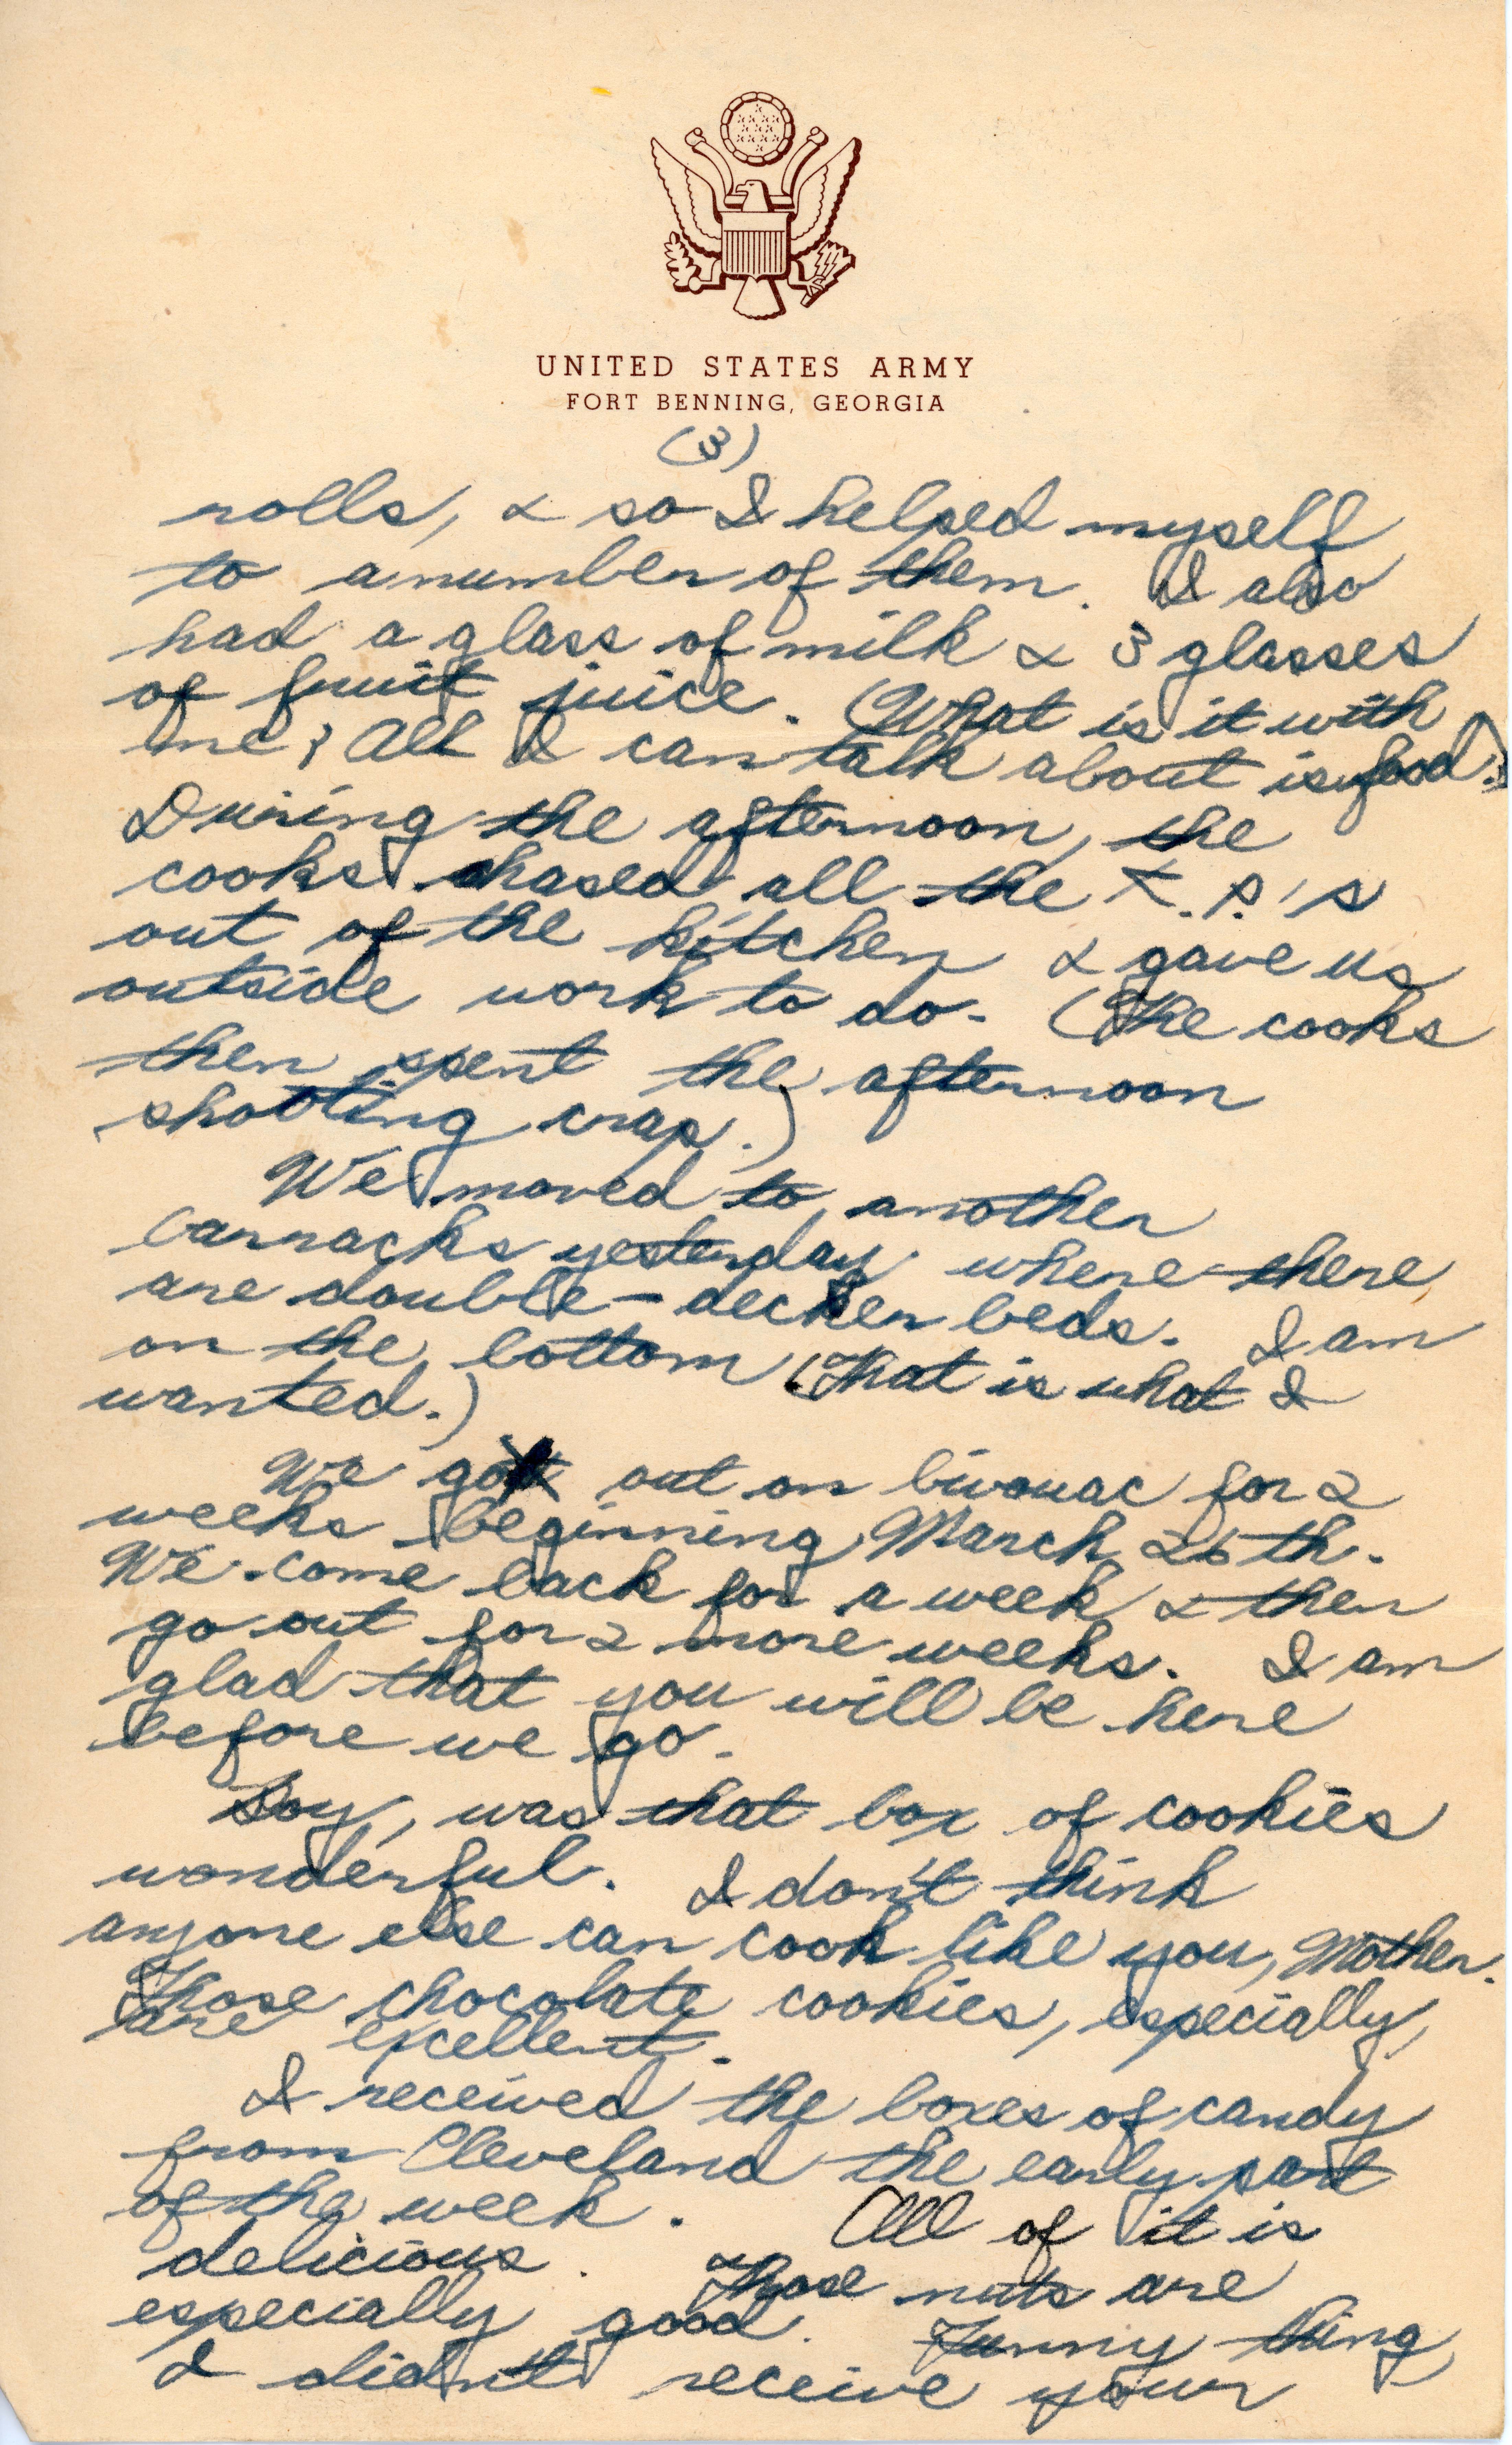 UNITED STATES ARMY
FORT BENNING, GEORGIA
(3)
rolls, & so I helped myself
to a number of them. I also
had a glass of milk & 3 glasses
of fruit juice. (What is it with
me; All I can talk about is food.)
During the afternoon, the
cooks chased all the K.P.'s
out of the kitchen & gave us
outside work to do. (The cooks
then spent the afternoon
shooting crap.)
We moved to another
barracks yesterday where there
are double-decker beds. I am
on the bottom (That is what I
wanted.)
We go out on bivouac for 2
weeks beginning March 26th.
We come back for a week & then
go out for 2 more weeks. I am
glad that you will be here
before we go.
Boy, was that box of cookies
wonderful. I don't think
anyone else can cook like you, Mother.
Those chocolate cookies, especially,
are excellent.
I received the boxes of candy
from Cleveland the early part
of the week. All of it is
delicious. Those nuts are
especially good. Funny thing
I didn't receive your